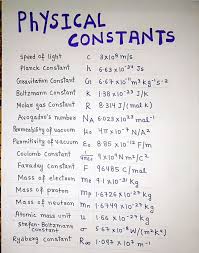 PHYSICAL
CONSTANTS
Speed of light c 3x10⁸ m/s
Planck constant h 6.63 x 10⁻³⁴ Js
Gravitation Constant G 6.67x10⁻¹¹ m³ kg⁻¹ s⁻²
Boltzmann constant K 1.38 x 10⁻²³ J/K
Molar gas Constant R 8.314 J/(mol K)
Avogadro's number NA 6.023x10²³ mol⁻¹
Permeability of vacuum μ₀ 4π x 10⁻⁷ N/A²
Permitivity of vacuum ε₀ 8.85 x 10⁻¹² F/m
Coulomb constant 1/4πε₀ 9x10⁹ N m²/C²
Faraday constant F 96485 C/mol
Mass of electron me 9.1x10⁻³¹ kg
Mass of proton mp 1.6726x10⁻²⁷ kg
Mass of neutron mn 1.6749x10⁻²⁷ kg
Atomic mass unit u 1.66 x 10⁻²⁷ kg
Stefan-Boltzmann
Constant σ 5.67x10⁻⁸ W/(m²K⁴)
Rydberg constant R∞ 1.097 x 10⁷ m⁻¹